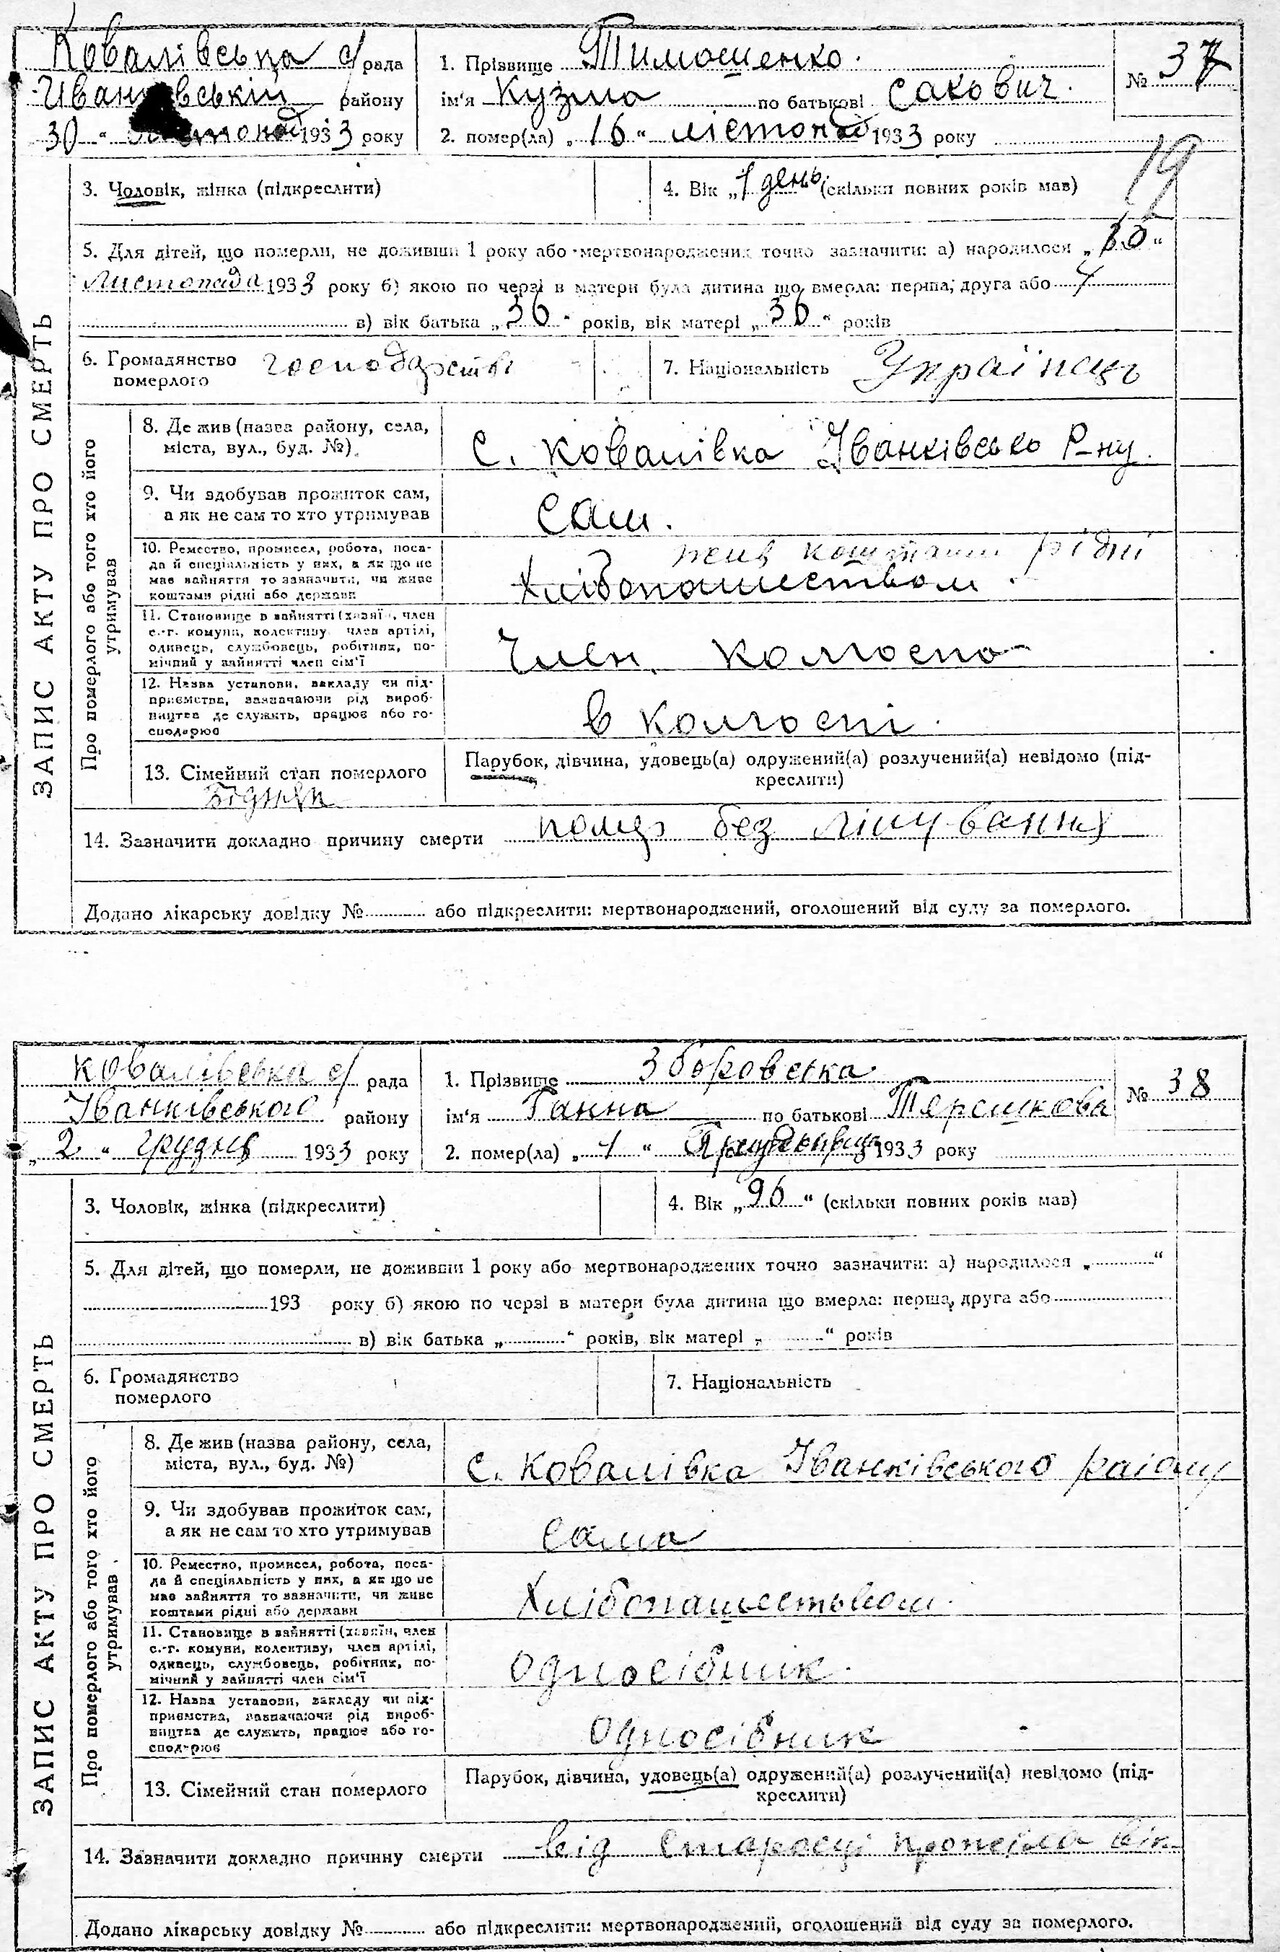 Ковалівська с/рада
Іванківський району
30 " листопад 1933 року
1. Прізвище Тимошенко.
ім'я Кузма по батькові Сакович.
2. помер(ла) „ 16 " лістопад 1933 року
№ 37
19
3. Чоловік, жінка (підкреслити)
4. Вік „ 1 день (скільки повних років мав)
5. Для дітей, що померли, не доживши 1 року або мертвонароджених точно зазначити: а) народилося „ "
Листопада 1933 року б) якою по черзі в матери була дитина що вмерла: перша, друга або
в) вік батька „ 36 " років, вік матері „ 36 " років
6. Громадянство
померлого
7. Національність Українець
ЗАПИС АКТУ ПРО СМЕРТЬ
Про померлого або того хто його
утримував
8. Де жив (назва району, села,
міста, вул., буд. №).
с. Ковалівка Іванківсько Р-ну.
9. Чи здобував прожиток сам,
а як не сам то хто утримував
Сам.
10. Ремество, промисел, робота, поса-
да й спеціяльність у них, а як що не
має зайняття то зазначити, чи живе
коштами рідні або держави
жив коштами рідні
Хлібопашеством.
11. Становище в зайнятті (хазяїн, член
с.-г. комуни, колективу, член артілі,
одинець, службовець, робітник, по-
мічний у зайнятті член сім'ї
Член колгоспо
12. Назва установи, закладу чи під-
приємства, зазначаючи рід вироб-
ництва де служить, працює або го-
сподарює
в колгоспі.
13. Сімейний стан померлого
Бідняк
Парубок, дівчина, удовець(а) одружений(а) розлучений(а) невідомо (під-
креслити)
14. Зазначити докладно причину смерти помер без лікування
Додано лікарську довідку № або підкреслити: мертвонароджений, оголошений від суду за померлого.
Ковалівська с/рада
Іванківського району
„ 2 " грудня 1933 року
1. Прізвище Зборовська
ім'я Ганна по батькові Терешкова
2. помер(ла) „ 1 " 1933 року
№ 38
3. Чоловік, жінка (підкреслити)
4. Вік „ 96 " (скільки повних років мав)
5. Для дітей, що померли, не доживши 1 року або мертвонароджених точно зазначити: а) народилося „ "
193 року б) якою по черзі в матери була дитина що вмерла: перша, друга або
в) вік батька „ " років, вік матері „ " років
6. Громадянство
померлого
7. Національність
ЗАПИС АКТУ ПРО СМЕРТЬ
Про померлого або того хто його
утримував
8. Де жив (назва району, села,
міста, вул., буд. №)
с. Ковалівка Іванківського району
9. Чи здобував прожиток сам,
а як не сам то хто утримував
сама
10. Ремество, промисел, робота, поса-
да й спеціяльність у них, а як що не
має зайняття то зазначити, чи живе
коштами рідні або держави
Хлібопашеством.
11. Становище в зайнятті (хазяїн, член
с.-г. комуни, колективу, член артілі,
одинець, службовець, робітник, по-
мічний у зайнятті член сім'ї
односібник.
12. Назва установи, закладу чи під-
приємства, зазначаючи рід вироб-
ництва де служить, працює або го-
сподарює
односібник
13. Сімейний стан померлого
Парубок, дівчина, удовець(а) одружений(а) розлучений(а) невідомо (під-
креслити)
14. Зазначити докладно причину смерти від старосці прожила вік
Додано лікарську довідку № або підкреслити: мертвонароджений, оголошений від суду за померлого.